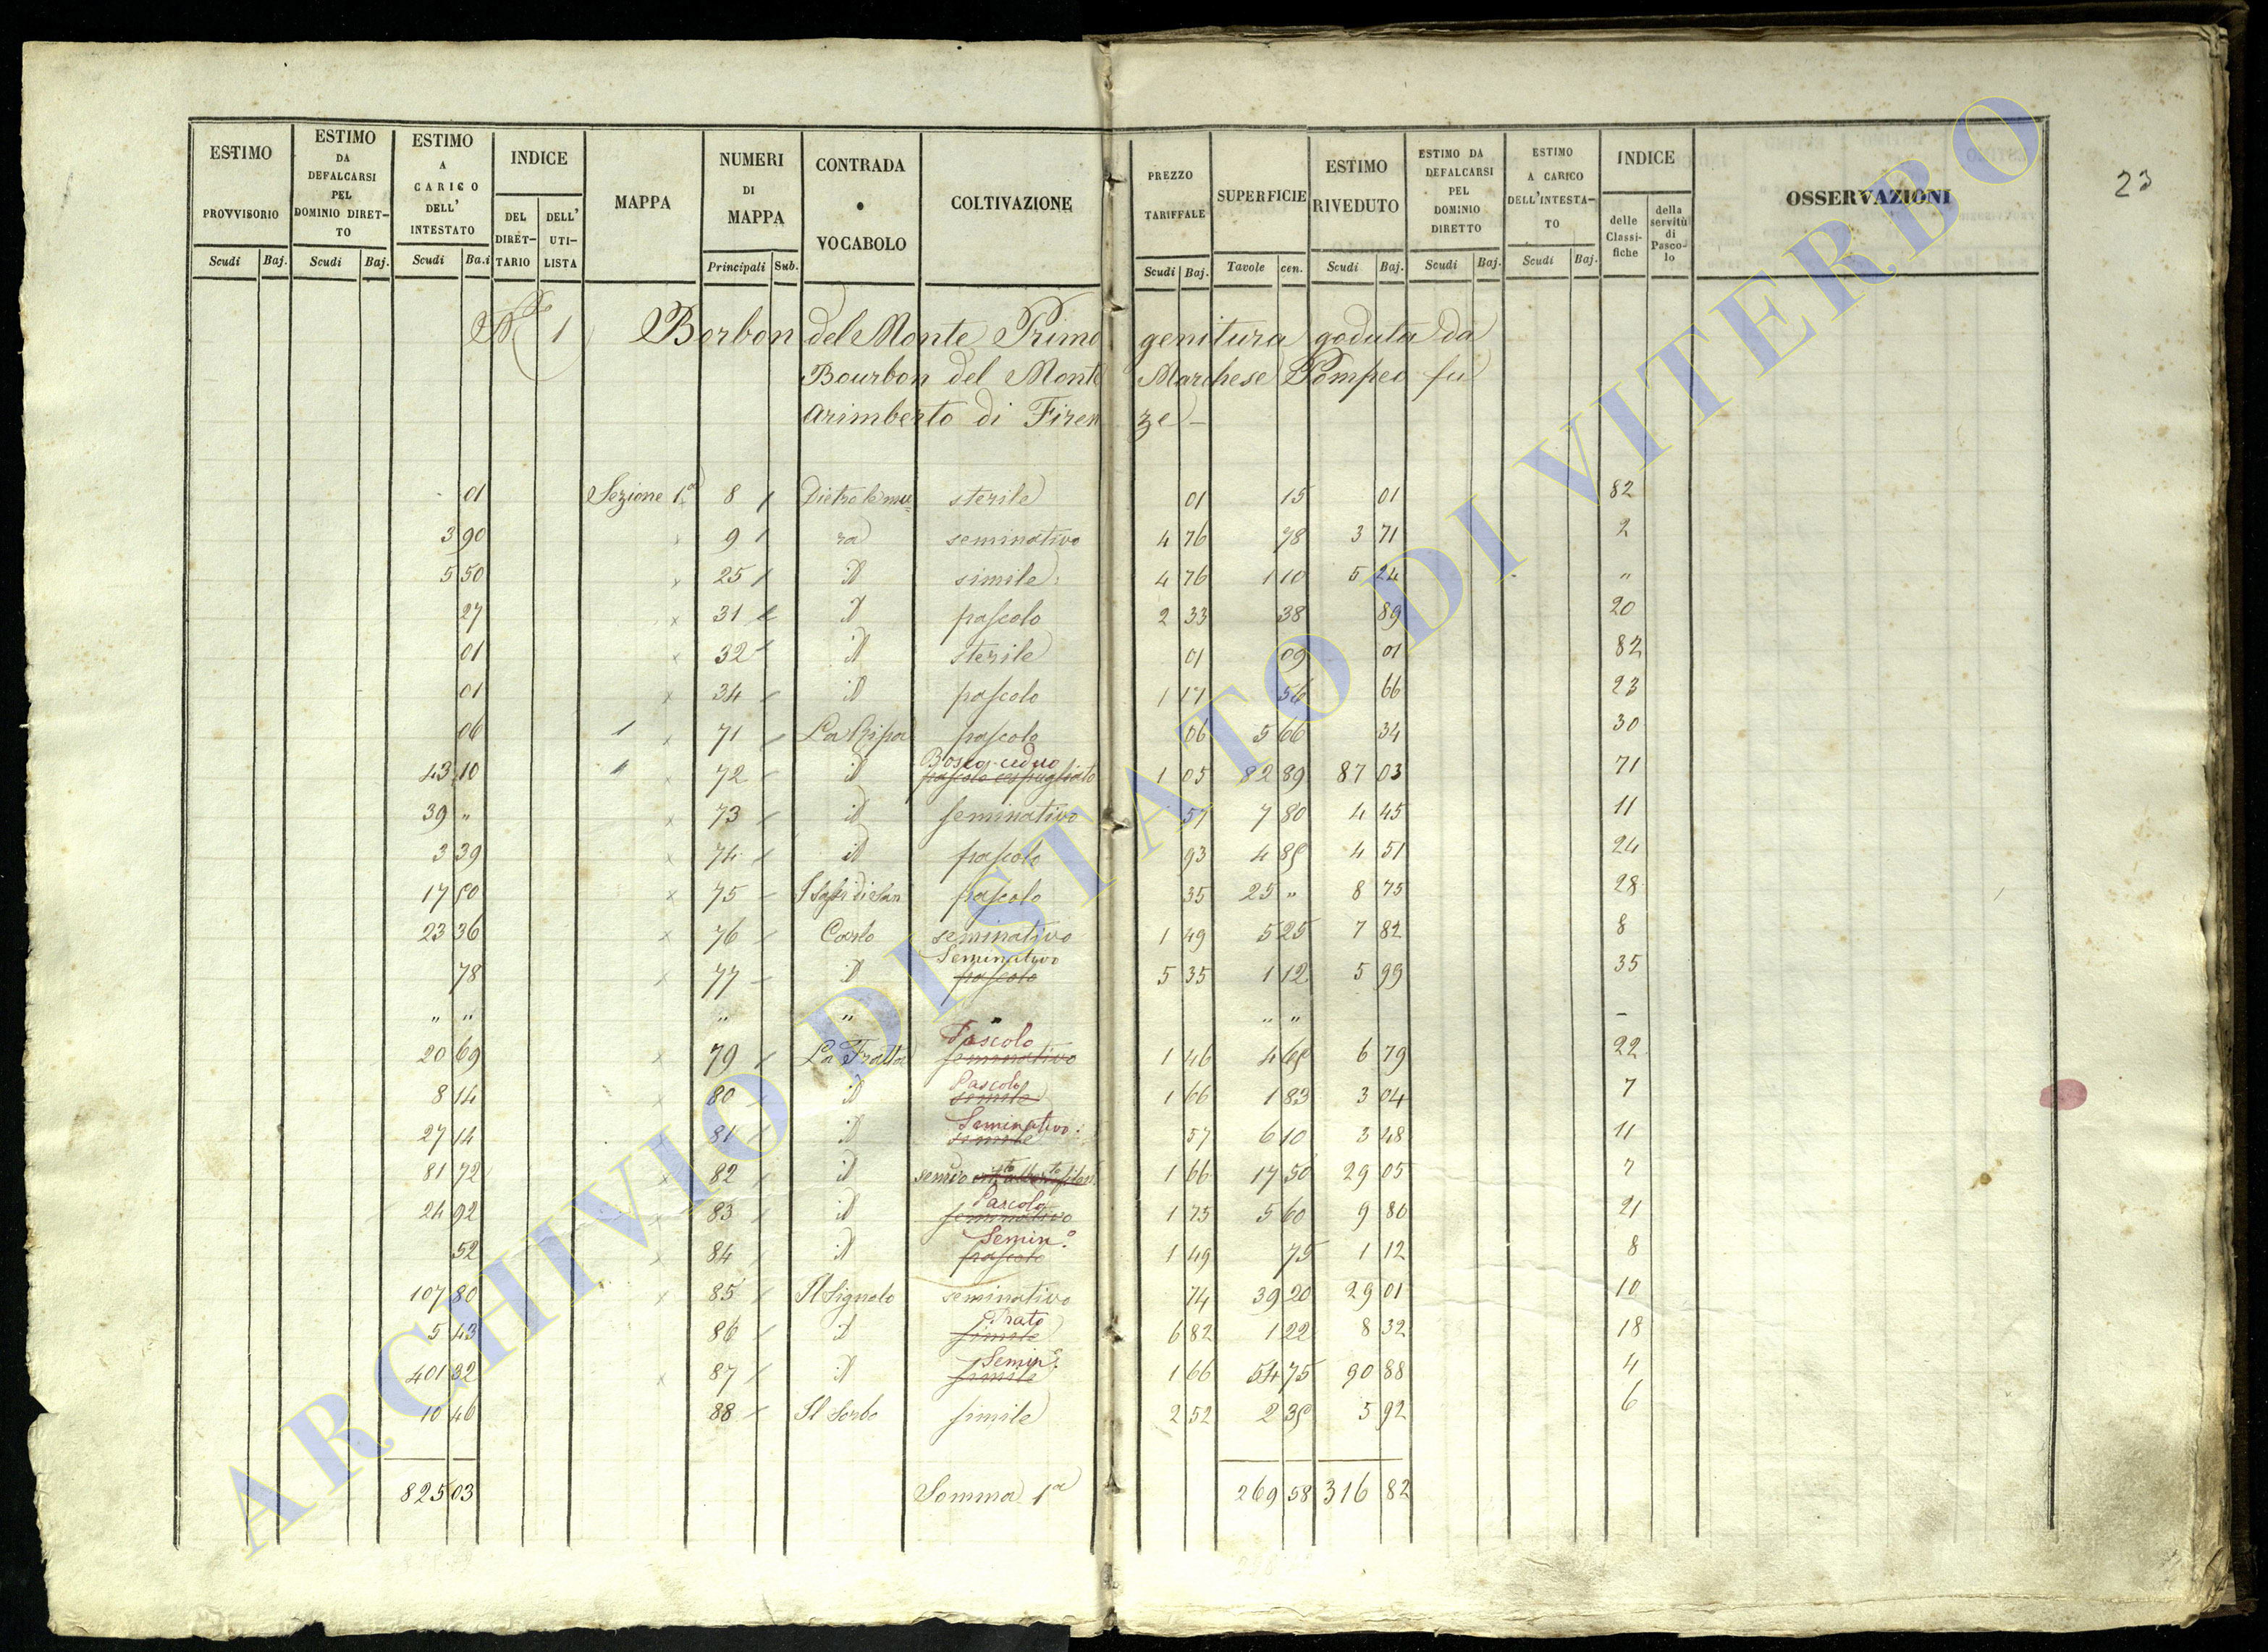 ESTIMO PROVVISORIO Scudi Baj.
ESTIMO DA DEFALCARSI PEL DOMINIO DIRET- TO Scudi Baj.
ESTIMO A CARICO DELL' INTESTATO Scudi Ba.i
INDICE DEL DIRET- TARIO DELL' UTI- LISTA
MAPPA
NUMERI DI MAPPA Principali Sub.
CONTRADA • VOCABOLO
COLTIVAZIONE
PREZZO TARIFFALE Scudi Baj.
SUPERFICIE Tavole cen.
ESTIMO RIVEDUTO Scudi Baj.
ESTIMO DA DEFALCARSI PEL DOMINIO DIRETTO Scudi Baj.
ESTIMO A CARICO DELL'INTESTA- TO Scudi Baj.
INDICE delle Classi- fiche della servitù di Pasco- lo
OSSERVAZIONI
23
1 Borbon del Monte Primo genitura goduta da
Bourbon del Monte Marchese Pompeo fu
Arimberto di Firen ze
01 Sezione 1a 8 Dietro le mu= sterile 01 15 01 82
3 90 9 ra seminativo 4 76 78 3 71 2
5 50 25 id simile 4 76 1 10 5 24 "
27 31 id pascolo 2 33 38 89 20
01 32 id sterile 01 09 01 82
01 34 id pascolo 1 17 56 66 23
06 1 71 La Ripa pascolo 06 5 66 34 30
Bosco ceduo
43 10 72 id pascolo cespugliato 1 05 82 89 87 03 71
39 " 73 id seminativo 57 7 80 4 45 11
3 39 74 id pascolo 93 4 85 4 51 24
17 50 75 I Sassi di San pascolo 35 25 " 8 75 28
23 36 76 Carlo seminativo 1 49 5 25 7 82 8
Seminativo
78 77 id pascolo 5 35 1 12 5 99 35
" " " " " " " –
Pascolo
20 69 79 La Fratta seminativo 1 46 4 65 6 79 22
Pascolo
8 14 80 id simile 1 66 1 83 3 04 7
Seminativo
27 14 81 id simile 57 6 10 3 48 11
81 72 82 id semivo 1 66 17 50 29 05 7
Pascolo
24 92 83 id seminativo 1 75 5 60 9 80 21
Semin.o
52 84 id pascolo 1 49 75 1 12 8
107 80 85 Il Signolo seminativo 74 39 20 29 01 10
Prato
5 43 86 id simile 6 82 1 22 8 32 18
Semin.o
401 32 87 id simile 1 66 54 75 90 88 4
10 46 88 Il Sorbo simile 2 52 2 35 5 92 6
825 03 Somma 1a 269 58 316 82
ARCHIVIO DI STATO DI VITERBO